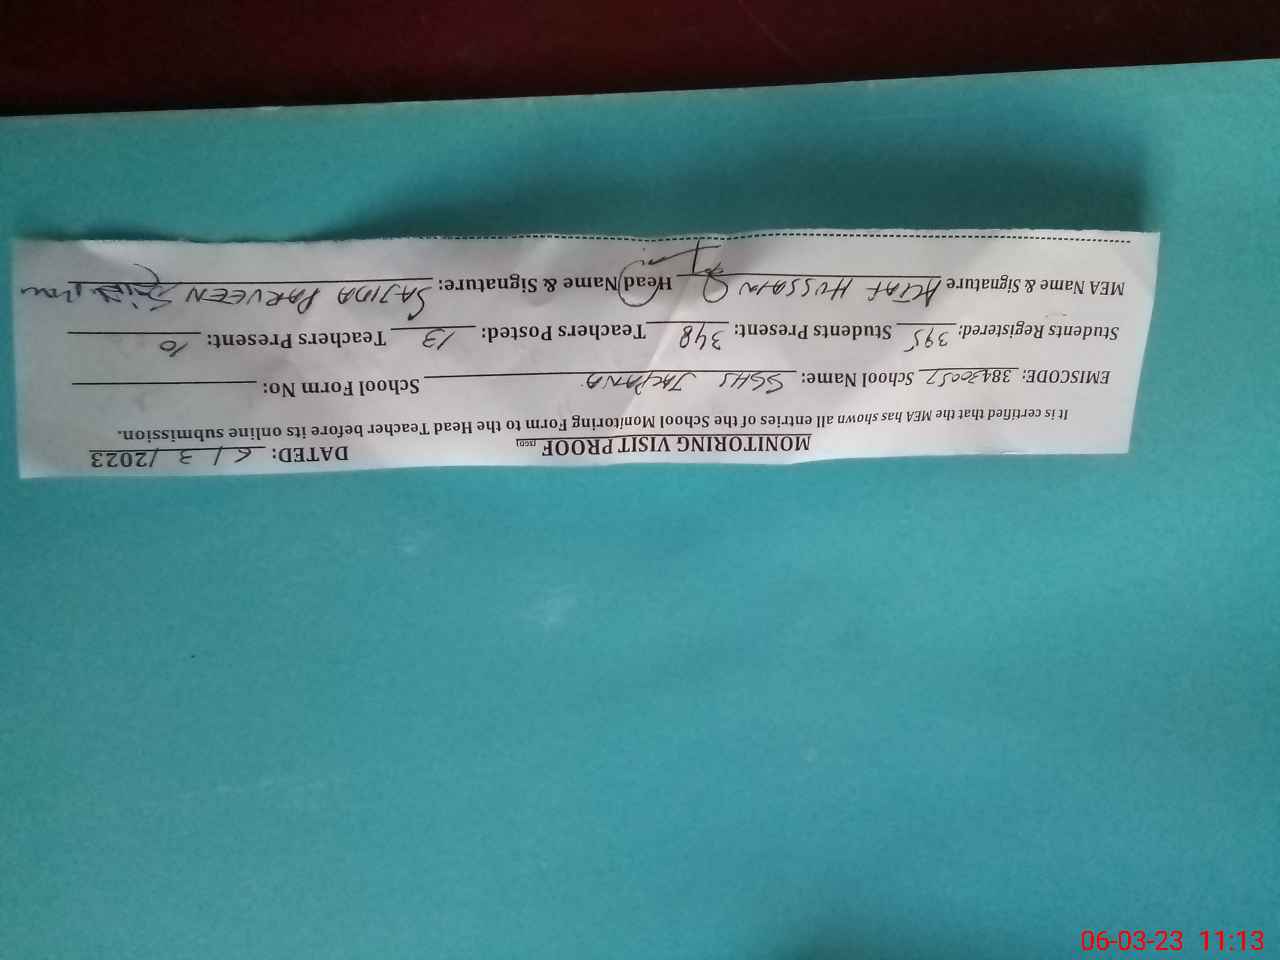 MONITORING VISIT PROOF DATED: 6/3/2023
It is certified that the MEA has shown all entries of the School Monitoring Form to the Head Teacher before its online submission.
EMISCODE: 38430057 School Name: GGHS JALPANA School Form No:
Students Registered: 395 Students Present: 348 Teachers Posted: 13 Teachers Present: 10
MEA Name & Signature ALTAF HUSSAIN Head Name & Signature: SAJIDA PARVEEN
06-03-23 11:13